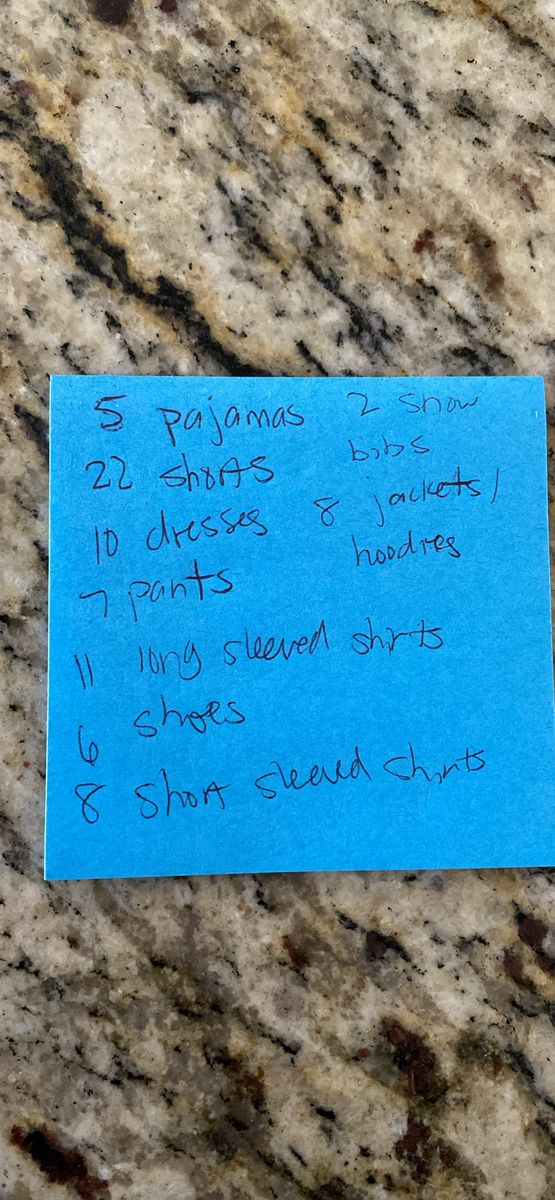 5 pajamas
22 shorts
10 dresses
7 pants
11 long sleeved shirts
6 shoes
8 short sleeved shirts
2 snow
bibs
8 jackets/
hoodies